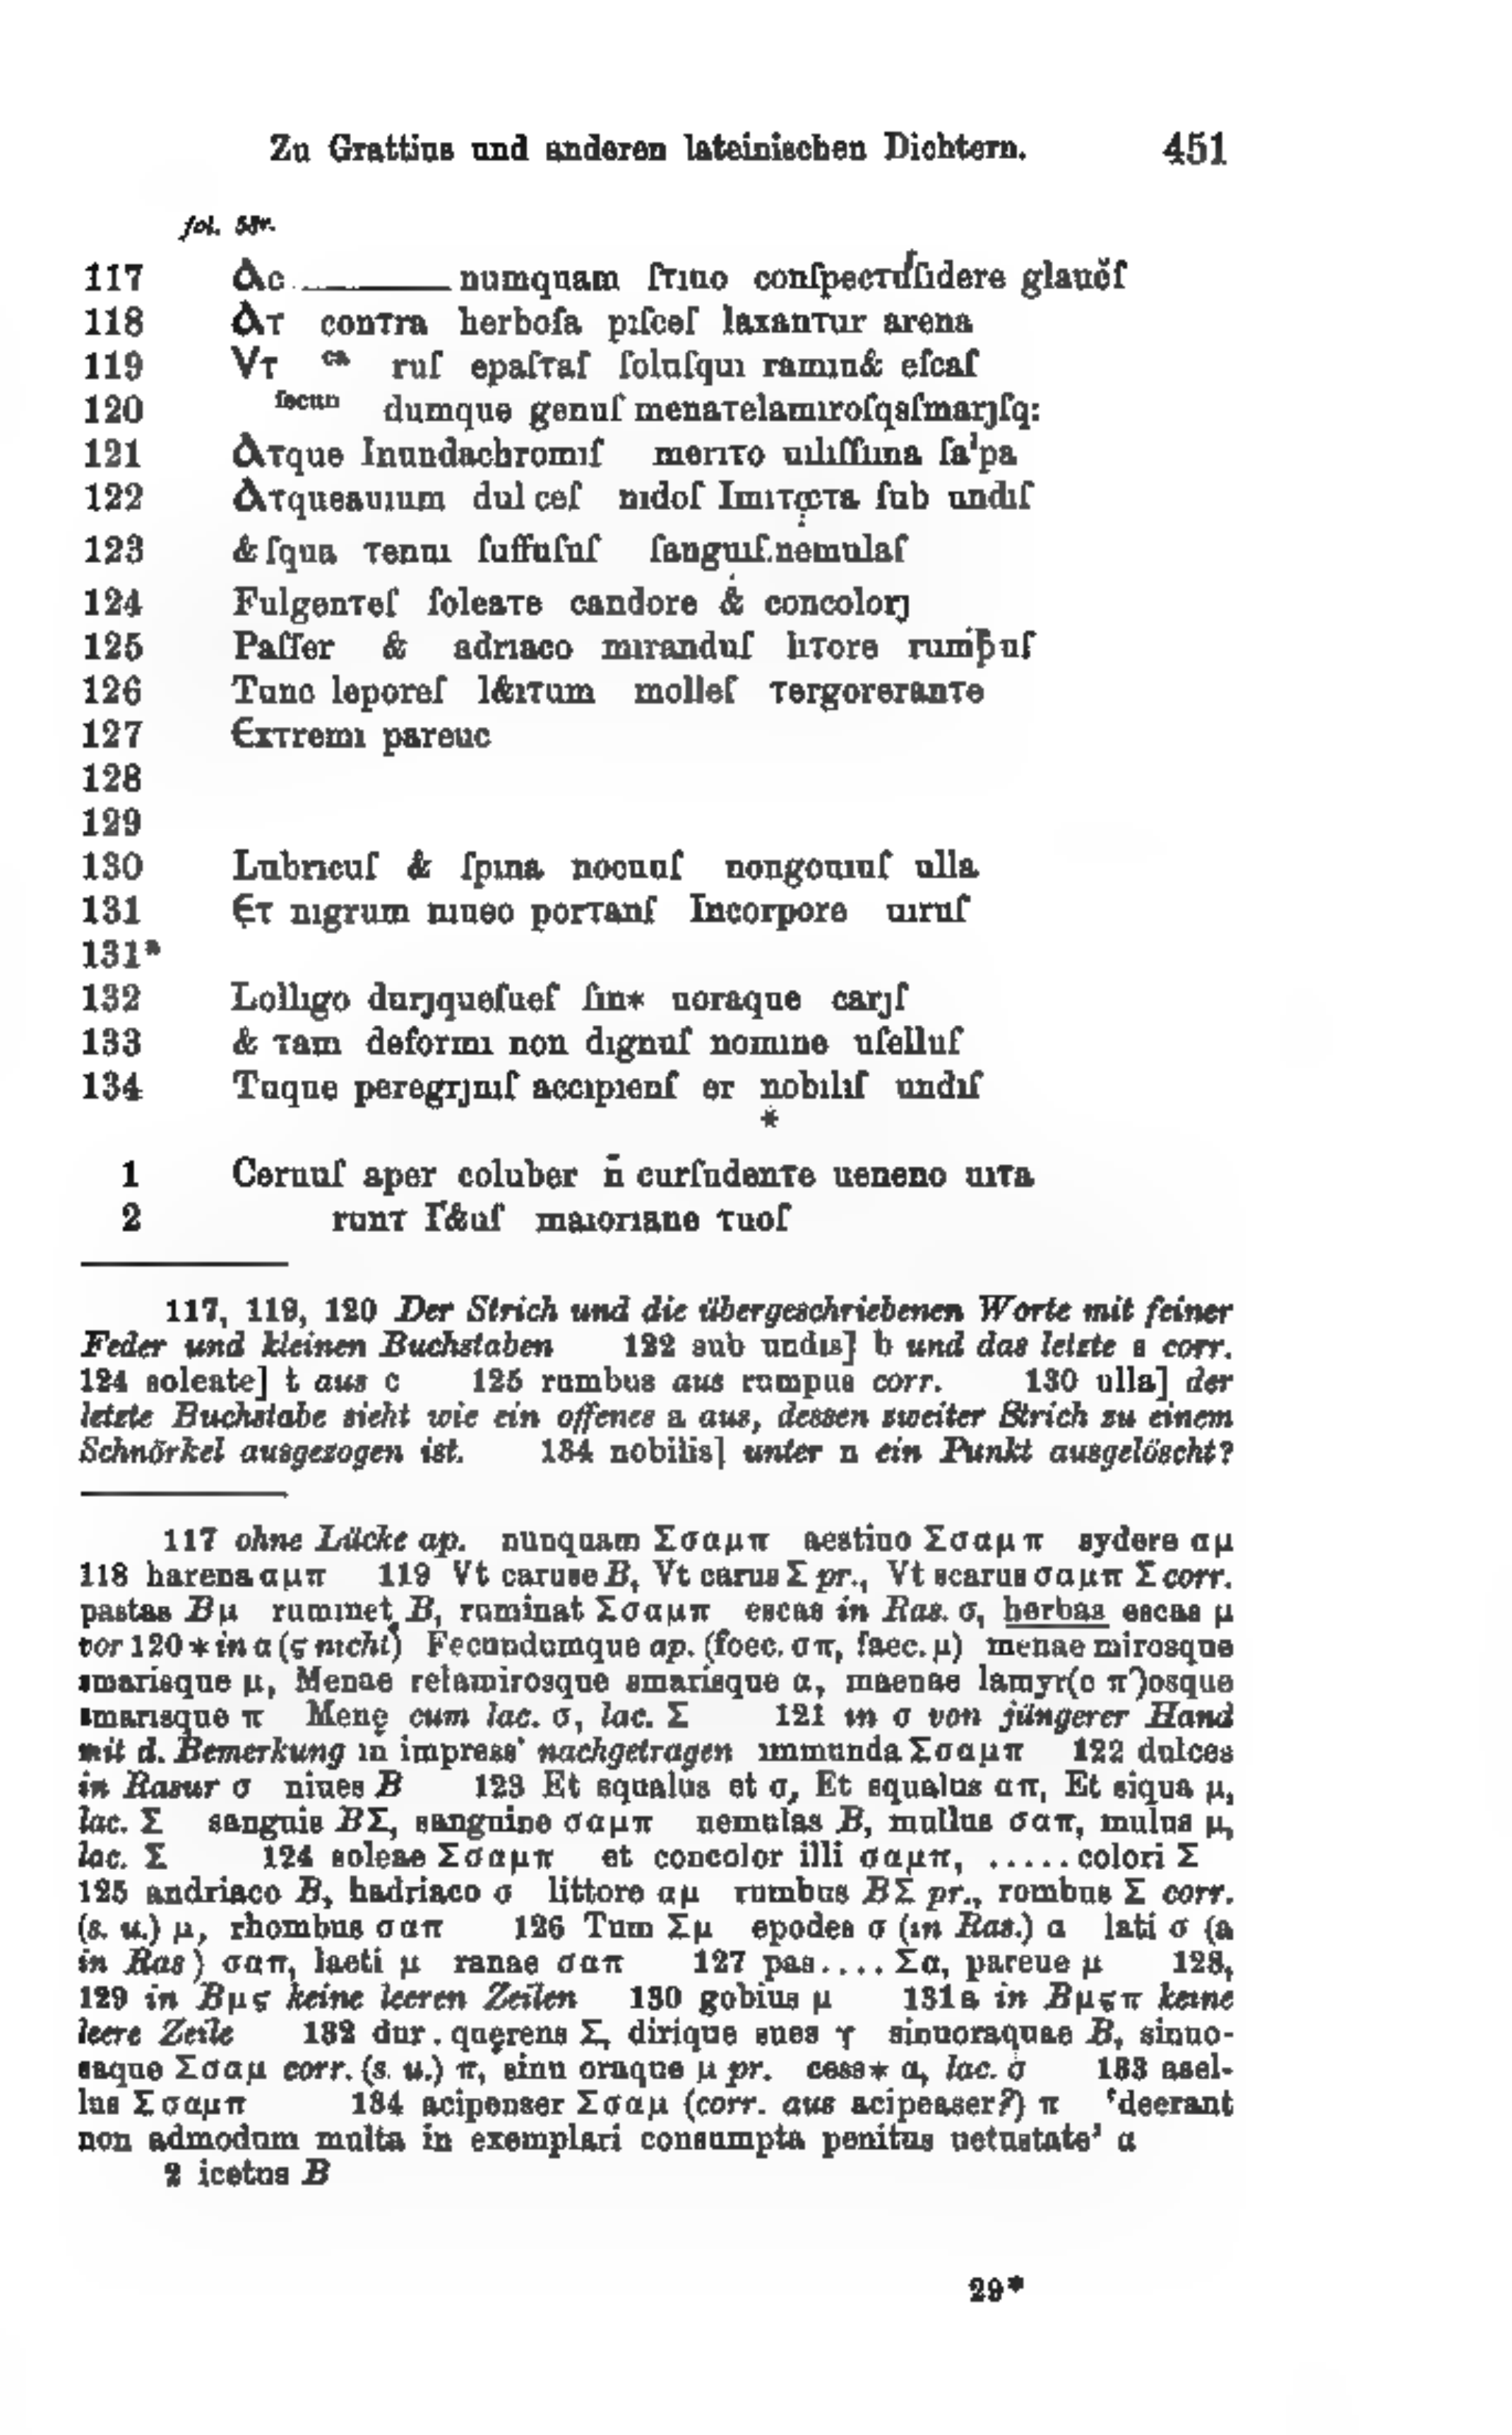 Zu Grattius und anderen lateinischen Dichtern. 451
fol. 58r.
117 Ac ———— numquam ſtiuo conſpectuſſidere glaucſ
118 At contra herboſa piſceſ laxantur arena
119 Vt ca ruſ epaſtaſ ſoluſqui ramin& eſcaſ
120 fecun dumque genuſ menatelamiroſqaſmarjſq:
121 Atque Inundachromiſ merito uiliſſima ſalpa
122 Atqueauium dul ceſ nidoſ Imitata ſub undiſ
123 & ſqua tenui ſuffuſuſ ſanguiſ.nemulaſ
124 Fulgenteſ ſoleate candore & concolorj
125 Paſſer & adriaco miranduſ litore rumbuſ
126 Tunc leporeſ l&itum molleſ tergorerante
127 Extremi pareuc
128
129
130 Lubricuſ & ſpina nocuuſ nongouiuſ ulla
131 Et nigrum niueo portanſ Incorpore uiruſ
131ᵃ
132 Lolligo durjqueſueſ ſin* uoraque carjſ
133 & tam deformi non dignuſ nomine uſelluſ
134 Tuque peregrjniſ accipienſ er nobiliſ undiſ
*
1 Ceruuſ aper coluber n̄ curſudente ueneno uita
2 runt I&uſ maioriane tuoſ
117, 119, 120 Der Strich und die übergeschriebenen Worte mit feiner
Feder und kleinen Buchstaben 122 sub undis] b und das letzte s corr.
124 soleate] t aus c 125 rumbus aus rumpus corr. 130 ulla] der
letzte Buchstabe sieht wie ein offenes a aus, dessen zweiter Strich zu einem
Schnörkel ausgezogen ist. 134 nobilis] unter n ein Punkt ausgelöscht?
117 ohne Lücke ap. nunquam Σσαμπ aestiuo Σσαμπ sydere αμ
118 harena αμπ 119 Vt caruse B, Vt carus Σ pr., Vt scarus σαμπ Σ corr.
pastas Bμ ruminet B, ruminat Σσαμπ escas in Ras. σ, herbas escas μ
vor 120 * in α (ς nicht) Fecundumque ap. (foec. σπ, faec. μ) menae mirosque
smarisque μ, Menae relamirosque smarisque α, maenae lamyr(c π')osque
smarisque π Menę cum lac. σ, lac. Σ 121 in σ von jüngerer Hand
mit d. Bemerkung in impress' nachgetragen immunda Σσαμπ 122 dulces
in Rasur σ niues B 123 Et squalus et σ, Et squalus απ, Et siqua μ,
lac. Σ sanguis BΣ, sanguine σαμπ nemulas B, mullus σαπ, mulus μ,
lac. Σ 124 soleae Σσαμπ et concolor illi σαμπ, ..... colori Σ
125 andriaco B, hadriaco σ littore αμ rumbus BΣ pr., rombus Σ corr.
(s. u.) μ, rhombus σαπ 126 Tum Σμ epodes σ (in Ras.) α lati σ (a
in Ras) σαπ, laeti μ ranae σαπ 127 pas.... Σα, pareue μ 128,
129 in Bμς keine leeren Zeilen 130 gobius μ 131a in Bμςπ keine
leere Zeile 132 dur . quęrens Σ, dirique sues γ sinuoraquae B, sinuo-
saque Σσαμ corr. (s. u.) π, sinu oraque μ pr. cess* α, lac. σ 133 asel-
lus Σσαμπ 134 acipenser Σσαμ (corr. aus acipeaser?) π 'deerant
non admodum multa in exemplari consumpta penitus uetustate' α
2 icetus B
29*